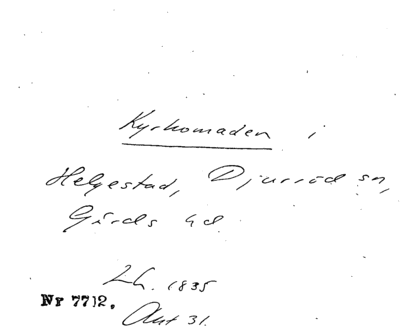 Kyrkomaden i
Helgestad, Djurröd sn,
Gärds hd.
Lh. 1835
Nr 7712.
Akt 31.